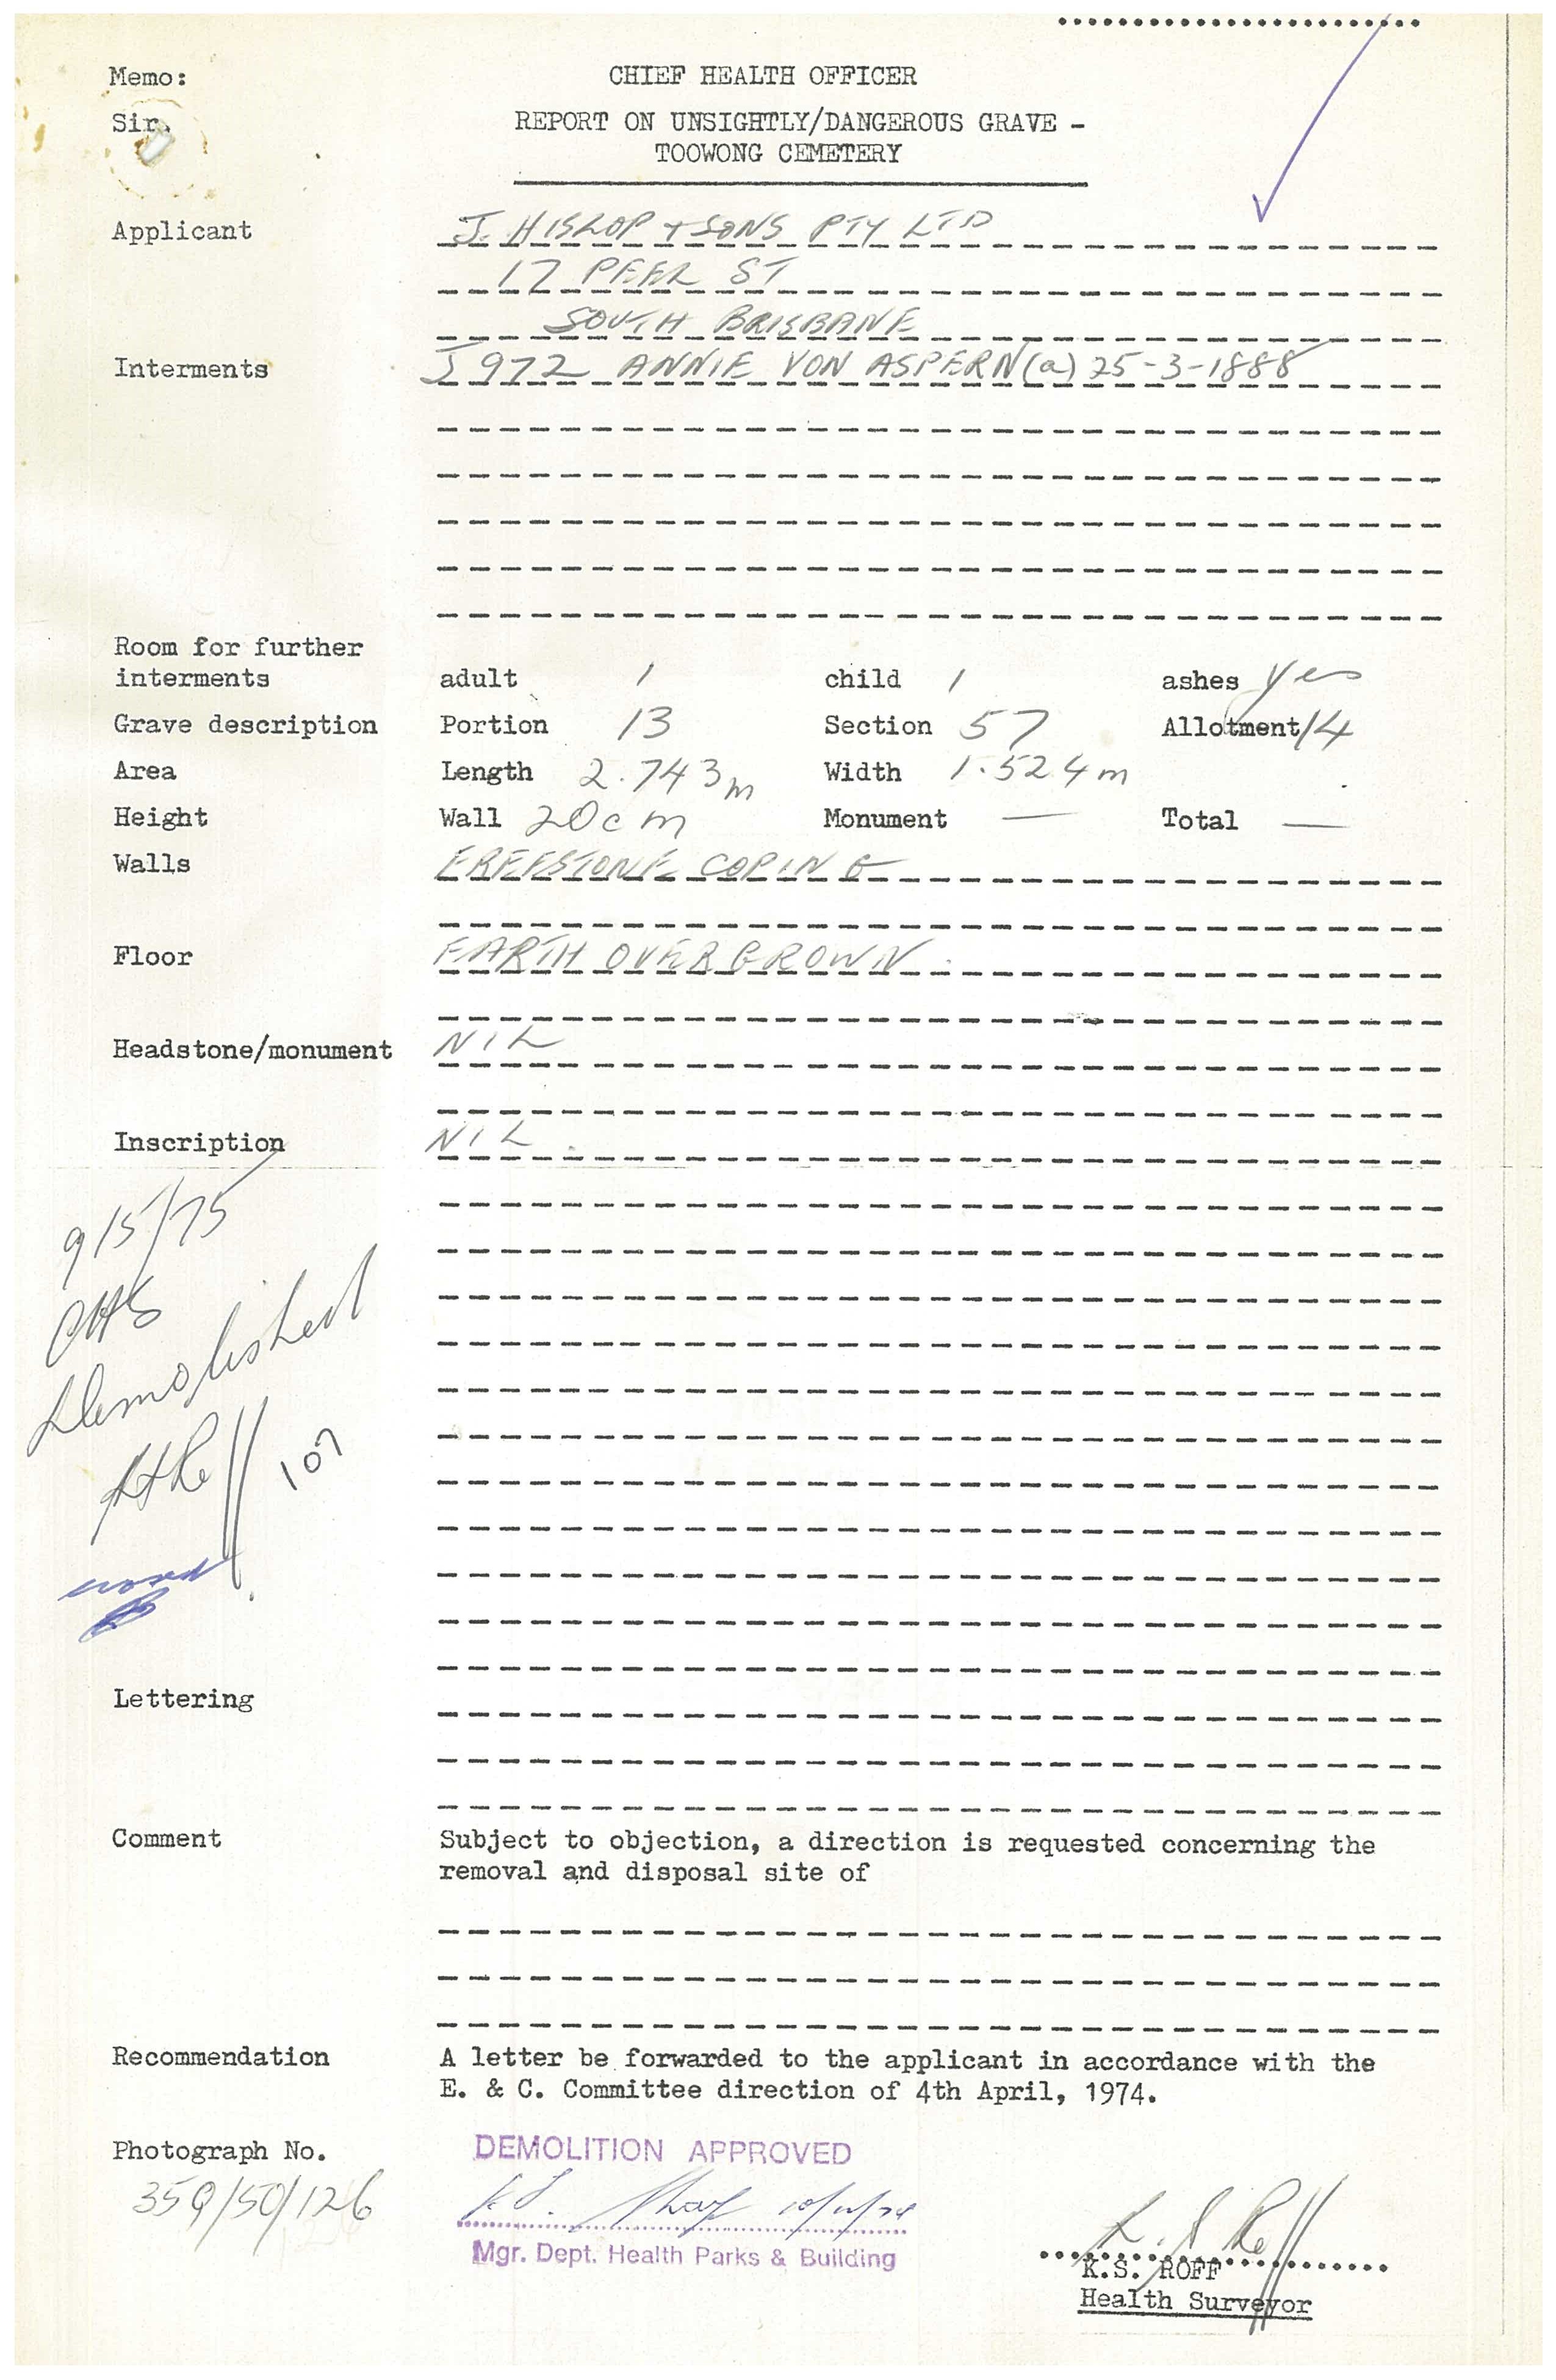 Memo: CHIEF HEALTH OFFICER
Sir, REPORT ON UNSIGHTLY/DANGEROUS GRAVE -
TOOWONG CEMETERY
Applicant J. HISLOP + SONS PTY LTD
17 PEEL ST
SOUTH BRISBANE
Interments J972 ANNIE VON ASPERN (a) 25-3-1888
Room for further
interments adult 1 child 1 ashes yes
Grave description Portion 13 Section 57 Allotment 14
Area Length 2.743m Width 1.524m
Height Wall 20cm Monument — Total —
Walls FREESTONE COPING
Floor EARTH OVERGROWN.
Headstone/monument NIL
Inscription NIL.
9/5/75
CHS
Demolished
107
Lettering
Comment Subject to objection, a direction is requested concerning the
removal and disposal site of
Recommendation A letter be forwarded to the applicant in accordance with the
E. & C. Committee direction of 4th April, 1974.
Photograph No. DEMOLITION APPROVED
359/50/126
Mgr. Dept. Health Parks & Building
K.S. ROFF
Health Surveyor